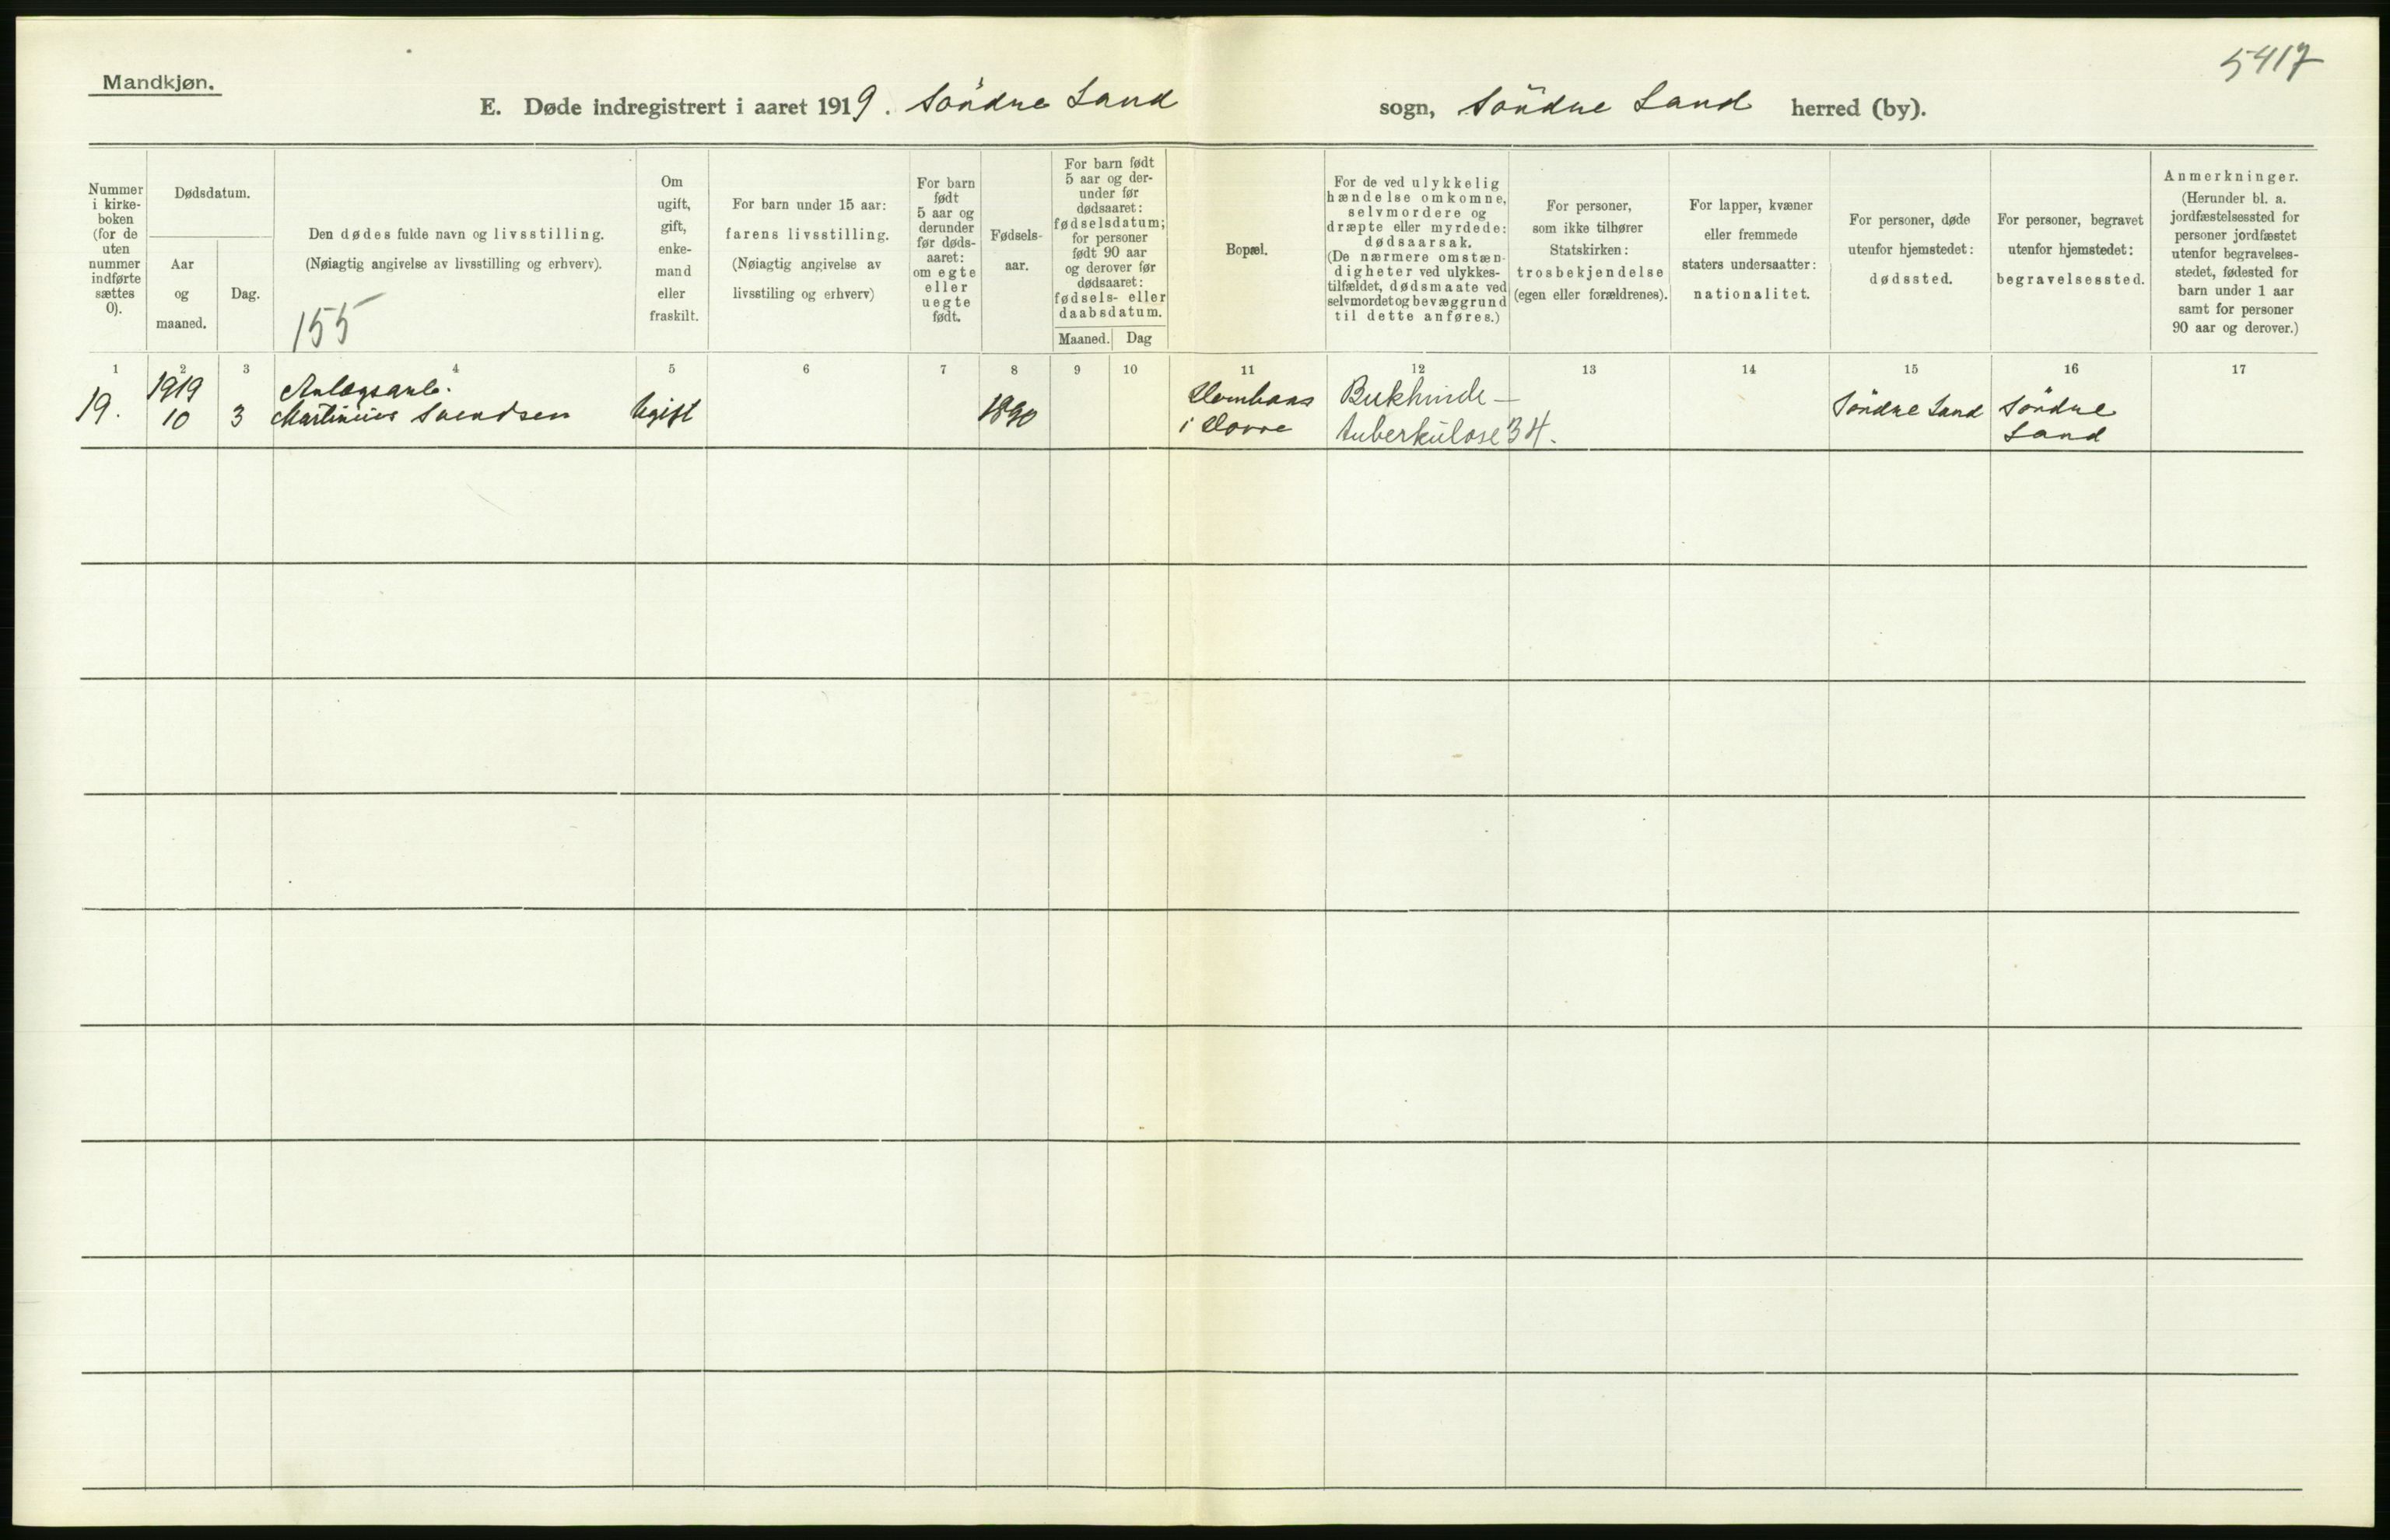 5417
Mandkjøn.
E. Døde indregistrert i aaret 1919. Söndre Land sogn, Söndre Land herred (by).
Nummer
i kirke-
boken
(for de
uten
nummer
indførte
sættes
0).
Dødsdatum.
Aar
og
maaned.
Dag.
Den dødes fulde navn og livsstilling.
(Nøiagtig angivelse av livsstilling og erhverv).
155
Om
ugift,
gift,
enke-
mand
eller
fraskilt.
For barn under 15 aar:
farens livsstilling.
(Nøiagtig angivelse av
livsstiling og erhverv)
For barn
født
5 aar og
derunder
før døds-
aaret:
om egte
eller
uegte
født.
Fødsels-
aar.
For barn født
5 aar og der-
under før
dødsaaret:
fødselsdatum;
for personer
født 90 aar
og derover før
dødsaaret:
fødsels- eller
daabsdatum.
Maaned. Dag
Bopæl.
For de ved ulykkelig
hændelse omkomne,
selvmordere og
dræpte eller myrdede:
dødsaarsak.
(De nærmere omstæn-
digheter ved ulykkes-
tilfældet, dødsmaate ved
selvmordet og bevæggrund
til dette anføres.)
For personer,
som ikke tilhører
Statskirken:
trosbekjendelse
(egen eller forældrenes).
For lapper, kvæner
eller fremmede
staters undersaatter:
nationalitet.
For personer, døde
utenfor hjemstedet:
dødssted.
For personer, begravet
utenfor hjemstedet:
begravelsessted.
Anmerkninger.
(Herunder bl. a.
jordfæstelsessted for
personer jordfæstet
utenfor begravelses-
stedet, fødested for
barn under 1 aar
samt for personer
90 aar og derover.)
1 2 3 4 5 6 7 8 9 10 11 12 13 14 15 16 17
19.
1919
10
3
Anlægsarb.
Martinius Svendsen
Ugift
1890
Dombaas
i Dovre
Bukhinde-
tuberkulose 34.
Söndre Land
Söndre
Land